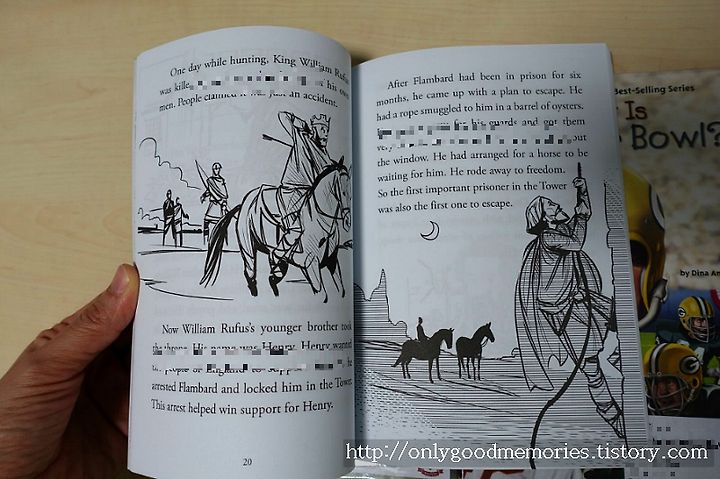 One day while hunting, King William Rufus
was
his own
men. People claimed it was just an accident.
Now William Rufus's younger brother took
the throne. His name was Henry. Henry wanted
arrested Flambard and locked him in the Tower.
This arrest helped win support for Henry.
20
After Flambard had been in prison for six
months, he came up with a plan to escape. He
had a rope smuggled to him in a barrel of oysters.
for his guards and got them
out
the window. He had arranged for a horse to be
waiting for him. He rode away to freedom.
So the first important prisoner in the Tower
was also the first one to escape.
Best-Selling Series
Is
Bowl?
by Dina
http://onlygoodmemories.tistory.com